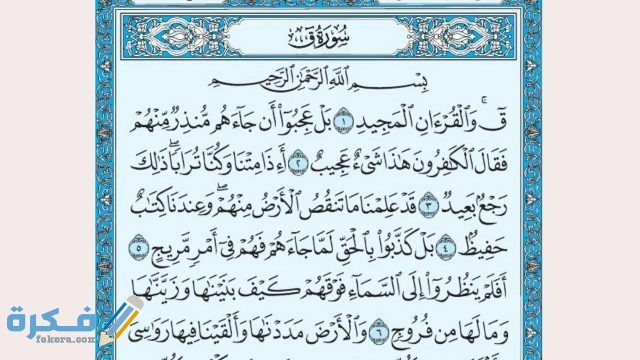 سُورَةُ ق
بِسْمِ ٱللَّهِ ٱلرَّحْمَٰنِ ٱلرَّحِيمِ
قٓۚ وَٱلْقُرْءَانِ ٱلْمَجِيدِ ١ بَلْ عَجِبُوٓا۟ أَن جَآءَهُم مُّنذِرٌ مِّنْهُمْ
فَقَالَ ٱلْكَٰفِرُونَ هَٰذَا شَىْءٌ عَجِيبٌ ٢ أَءِذَا مِتْنَا وَكُنَّا تُرَابًاۖ ذَٰلِكَ
رَجْعٌۢ بَعِيدٌ ٣ قَدْ عَلِمْنَا مَا تَنقُصُ ٱلْأَرْضُ مِنْهُمْۖ وَعِندَنَا كِتَٰبٌ
حَفِيظٌۢ ٤ بَلْ كَذَّبُوا۟ بِٱلْحَقِّ لَمَّا جَآءَهُمْ فَهُمْ فِىٓ أَمْرٍ مَّرِيجٍ ٥
أَفَلَمْ يَنظُرُوٓا۟ إِلَى ٱلسَّمَآءِ فَوْقَهُمْ كَيْفَ بَنَيْنَٰهَا وَزَيَّنَّٰهَا
وَمَا لَهَا مِن فُرُوجٍ ٦ وَٱلْأَرْضَ مَدَدْنَٰهَا وَأَلْقَيْنَا فِيهَا رَوَٰسِىَ
فكرة
fekera.com